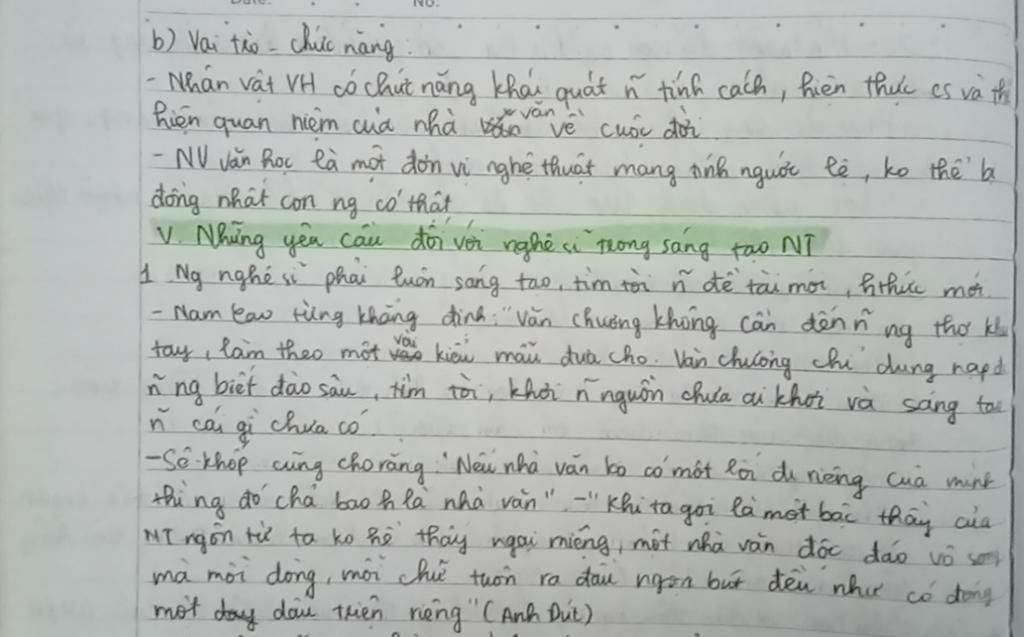 No.
b) Vai trò - chức năng:
- Nhân vật VH có chức năng khái quát ~n tính cách, hiện thực cs và th
hiện quan niệm của nhà văn về cuộc đời.
- NV văn học là một đơn vị nghệ thuật mang tính ngước lệ, ko thể bị
đồng nhất con ng có thật
V. Những yêu cầu đối với nghệ sĩ trong sáng tạo NT
1 Ng nghệ sĩ phải luôn sáng tạo, tìm tòi ~n đề tài mới, hthức mới
- Nam Cao từng khẳng định: "Văn chương không cần đến ~n ng thợ kh
tay, làm theo một vài kiểu mẫu đưa cho. Văn chương chỉ dung nạp đ
~n ng biết đào sâu, tìm tòi, khơi ~n nguồn chưa ai khơi và sáng tạo
~n cái gì chưa có.
- Sê-khốp cũng cho rằng: "Nếu nhà văn ko có một lối đi riêng của mình
thì ng đó chả bao h là nhà văn" - "Khi ta gọi là một bậc thầy của
NT ngôn từ ta ko hề thấy ngại miệng, một nhà văn độc đáo vô song
mà mỗi dòng, mỗi chữ tuôn ra đầu ngọn bút đều như có đóng
một dấu triện riêng" (Anh Đức)